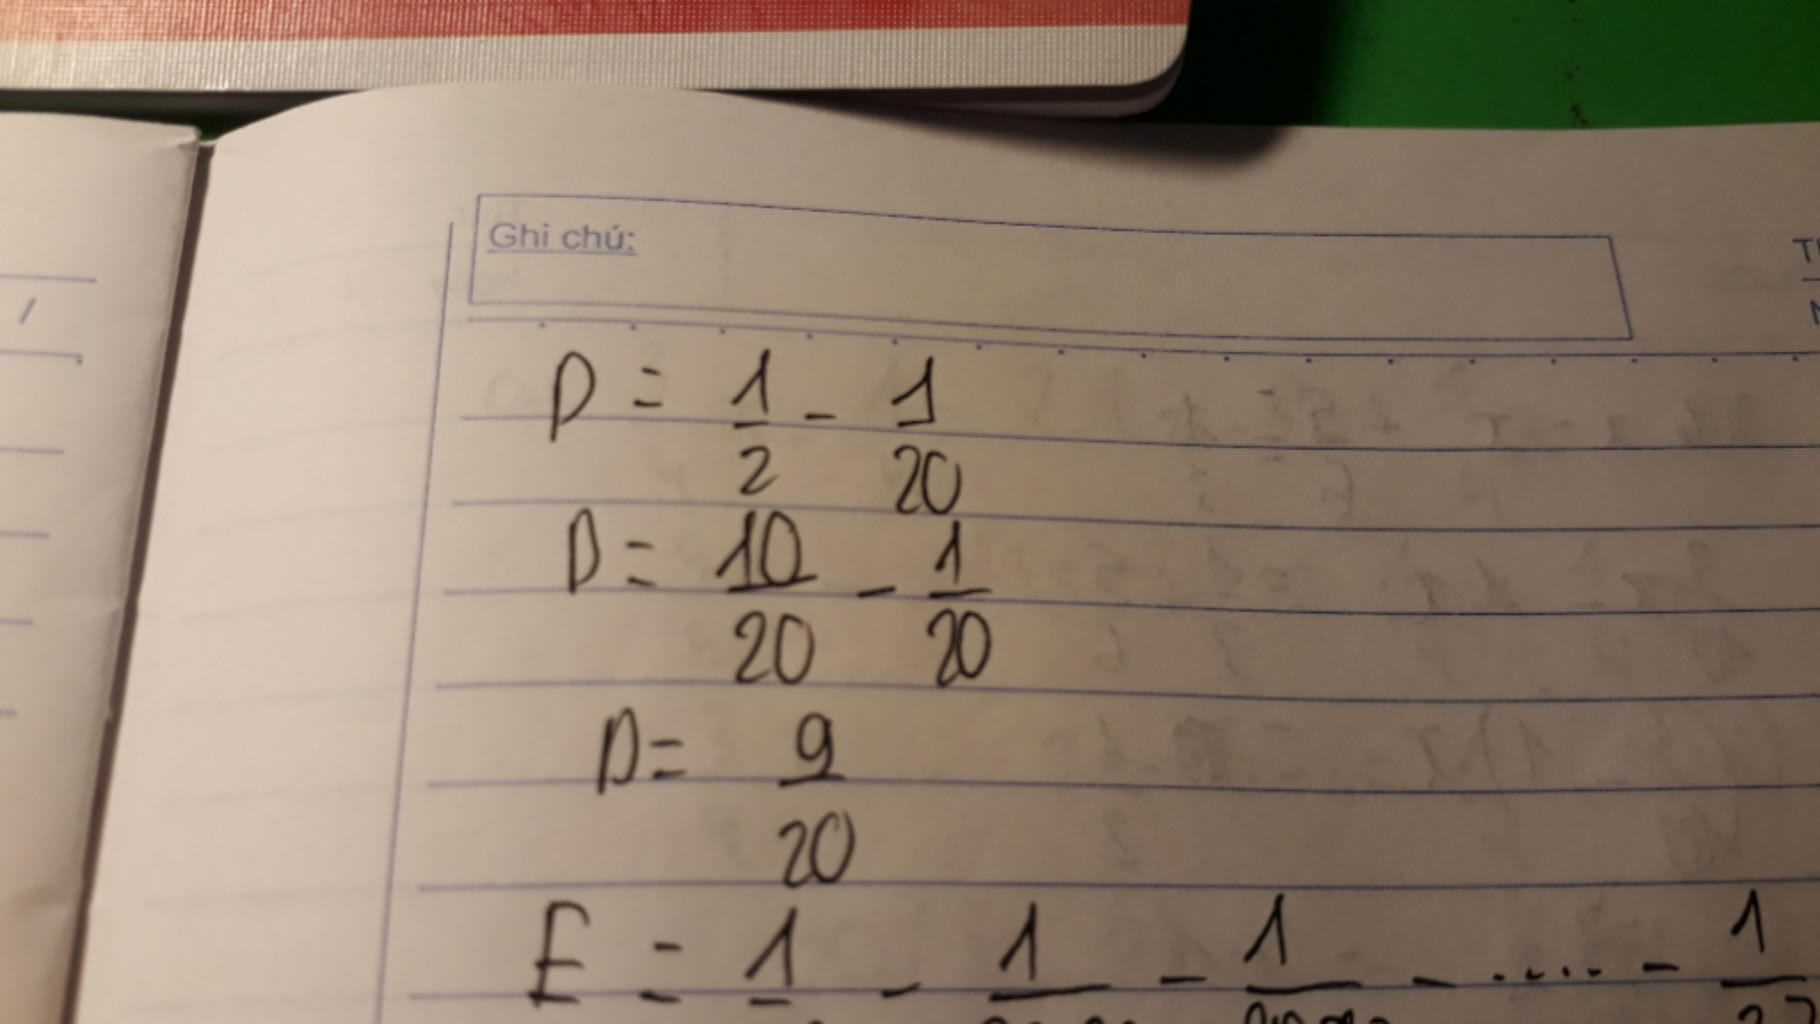 Ghi chú:
D = 1/2 - 1/20
D = 10/20 - 1/20
D = 9/20
E = 1 - 1 - 1 - ..... - 1